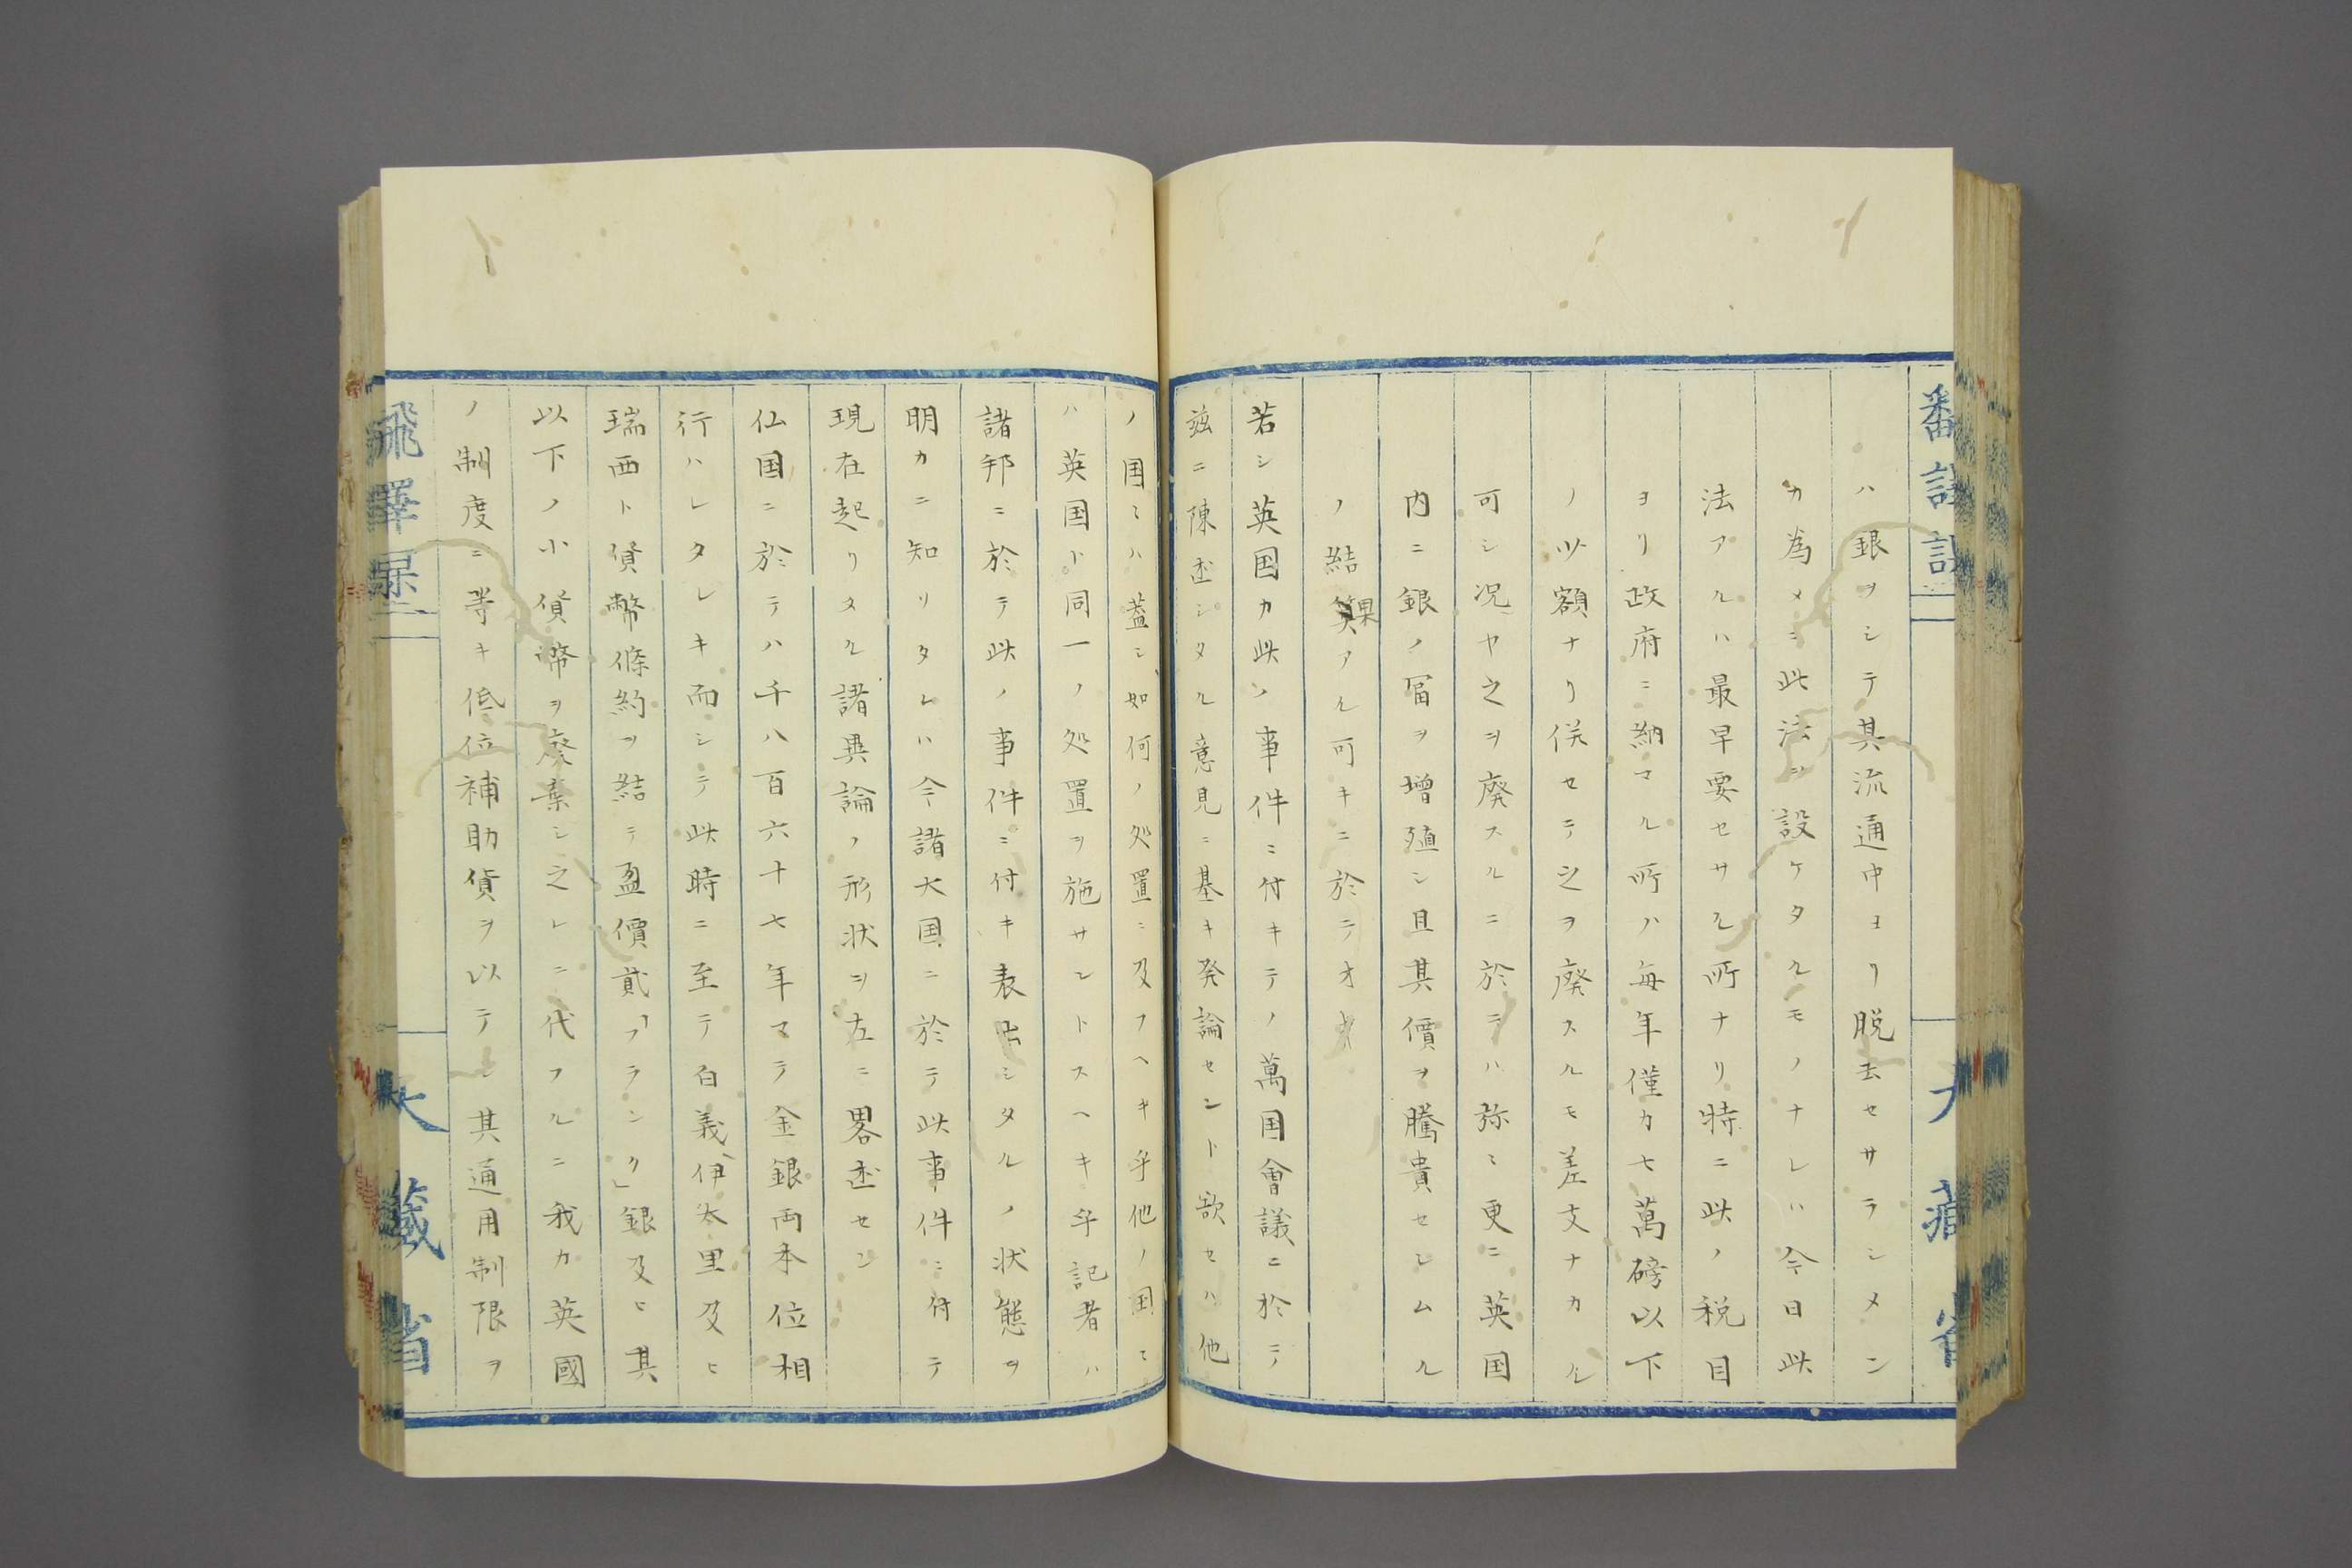 ハ銀ヲシテ其流通中ヨリ脱去セサラシメン
カ為メニ此法ヲ設ケタルモノナレハ今日此
法アルハ最早要セサル所ナリ特ニ此ノ税目
ヨリ政府ニ納マル所ハ毎年僅カ七萬磅以下
ノ少額ナリ併セテ之ヲ廃スルモ差支ナカル
可シ况ヤ之ヲ廃スルニ於テハ弥〻更ニ英国
内ニ銀ノ冨ヲ増殖シ且其價ヲ騰貴セシムル
ノ結果アル可キニ於テオヤ
若シ英国カ此ノ事件ニ付キテノ萬国會議ニ於テ
茲ニ陳述シタル意見ニ基キ発論セント欲セハ他
ノ国〻ハ蓋シ如何ノ処置ニ及フヘキ乎他ノ国〻
ハ英国ト同一ノ処置ヲ施サントスヘキ乎記者ハ
諸邦ニ於テ此ノ事件ニ付キ表出シタルノ状態ヲ
明カニ知リタレハ今諸大国ニ於テ此事件ニ付テ
現在起リタル諸異論ノ形状ヲ左ニ畧述セン
仏国ニ於テハ千八百六十七年マテ金銀両本位相
行ハレタレキ而シテ此時ニ至テ白義、伊太里及ヒ
瑞西ト貨幣條約ヲ結テ盈價貳「フランク」銀及ヒ其
以下ノ小貨幣ヲ廃棄シ之レニ代フルニ我カ英國
ノ制度ニ等キ低位補助貨ヲ以テシ其通用制限ヲ
大藏省